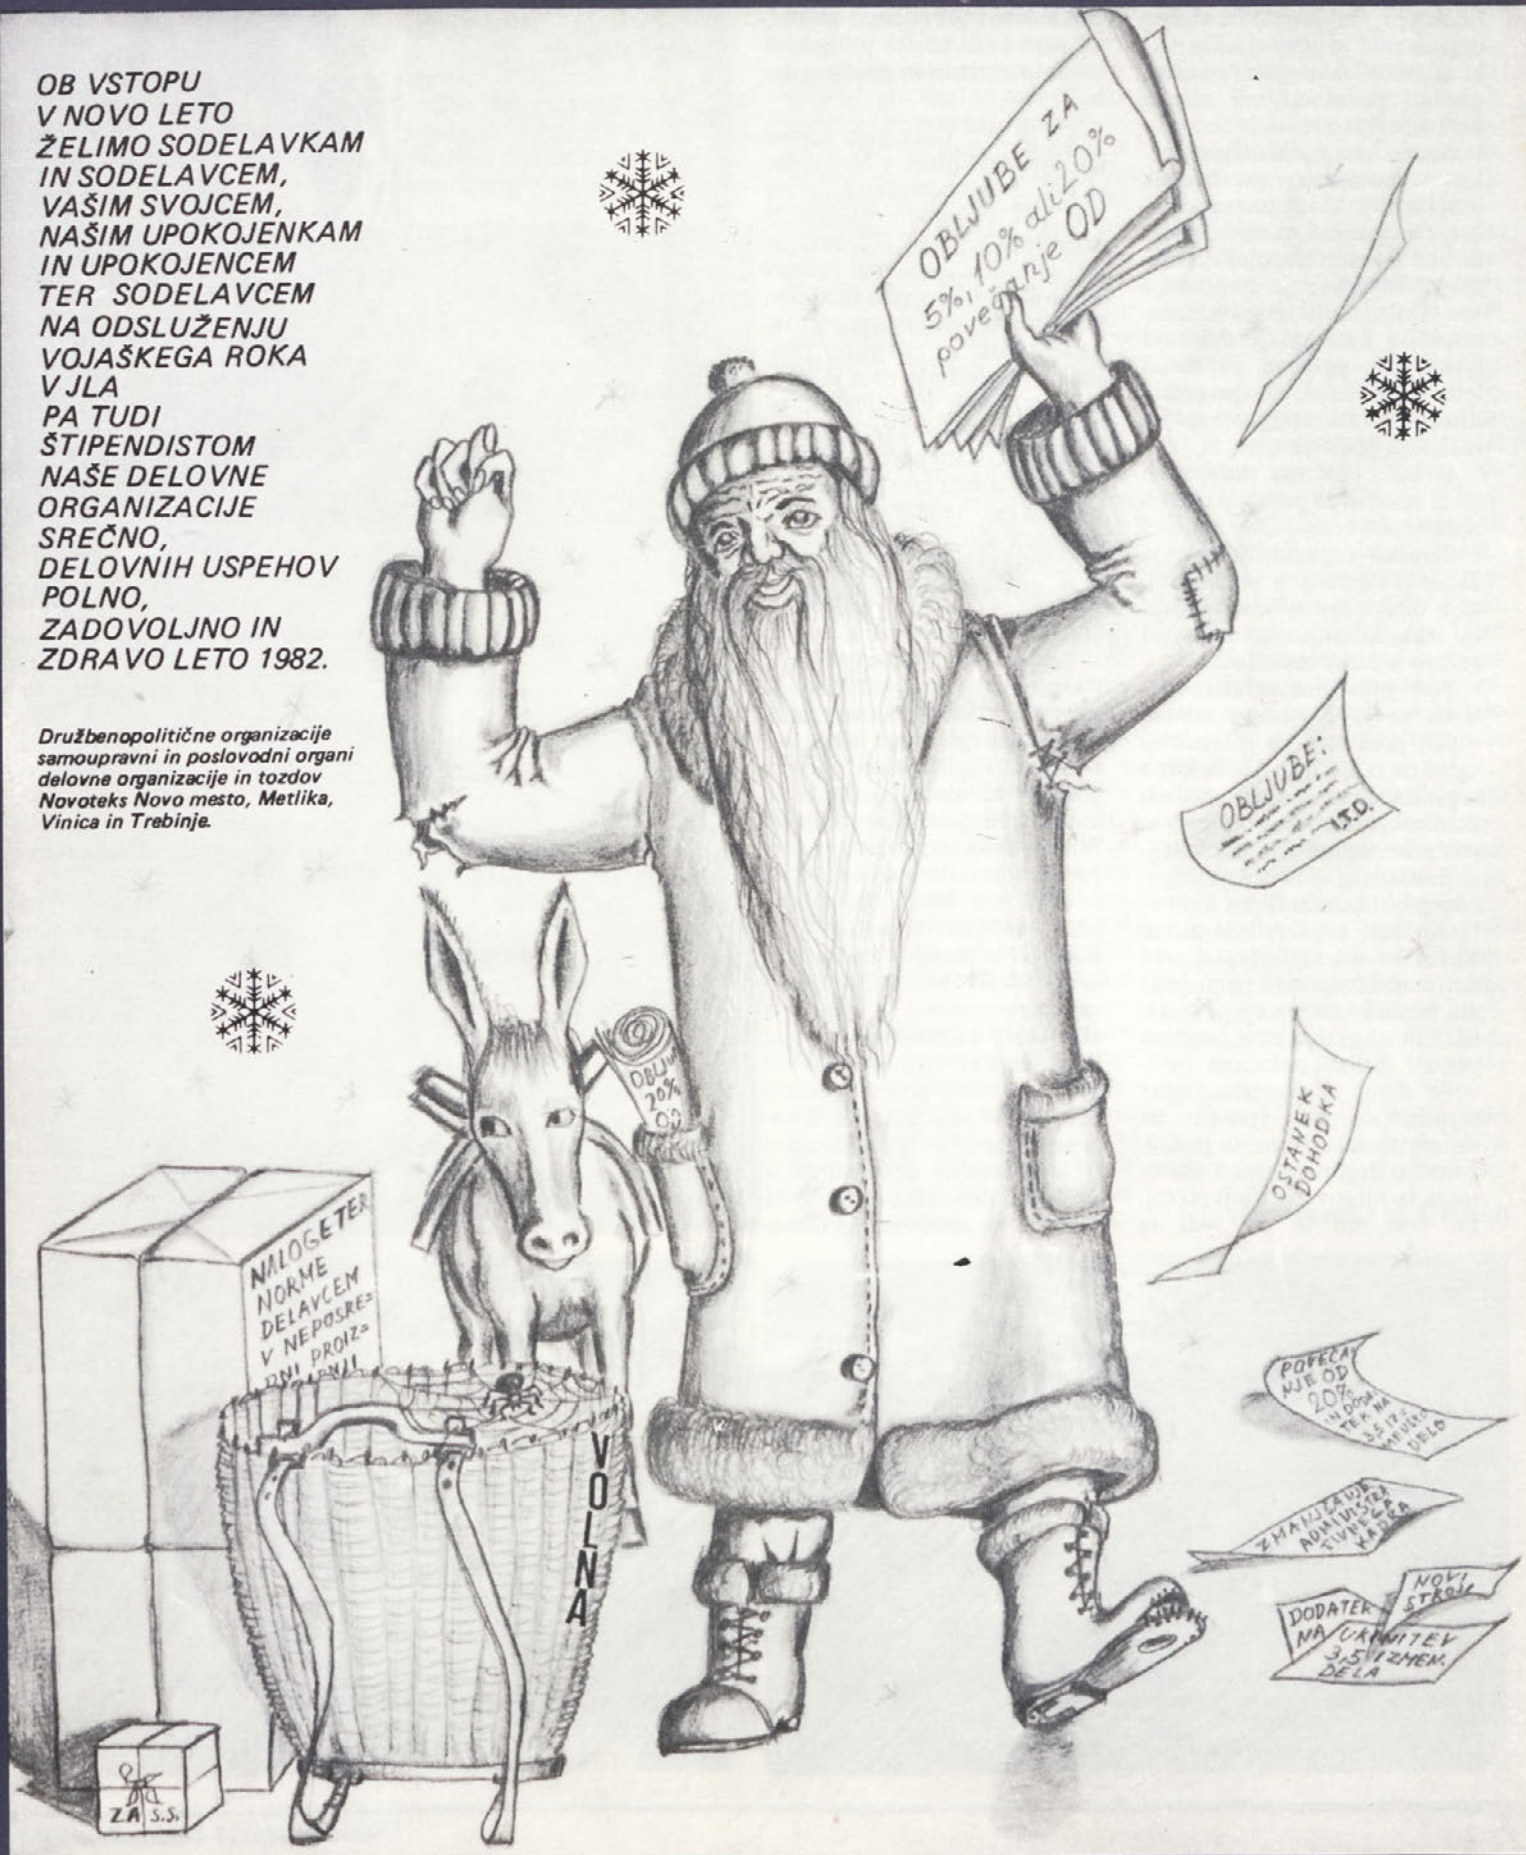 OB VSTOPU
V NOVO LETO
ŽELIMO SODELAVKAM
IN SODELAVCEM,
VAŠIM SVOJCEM,
NAŠIM UPOKOJENKAM
IN UPOKOJENCEM
TER SODELAVCEM
NA ODSLUŽENJU
VOJAŠKEGA ROKA
V JLA
PA TUDI
ŠTIPENDISTOM
NAŠE DELOVNE
ORGANIZACIJE
SREČNO,
DELOVNIH USPEHOV
POLNO,
ZADOVOLJNO IN
ZDRAVO LETO 1982.
Družbenopolitične organizacije
samoupravni in poslovodni organi
delovne organizacije in tozdov
Novoteks Novo mesto, Metlika,
Vinica in Trebinje.
OBLJUBE ZA
5%, 10% ali 20%
povečanje OD
OBLJUBE:
I.T.D.
OSTANEK
DOHODKA
OBLJU
20%
OD
NALOGE TER
NORME
DELAVCEM
V NEPOSRE=
DNI PROIZ=
VOLNA
ZA S.S.
POVEČA
NJE OD
20%
IN DODA
TEK NA
DELO
ZMANJŠANJE
ADMINISTRA
TIVNEGA
KADRA
NOVI
STROJI
DODATEK
NA
UKINITEV
3,5 IZMEN.
DELA